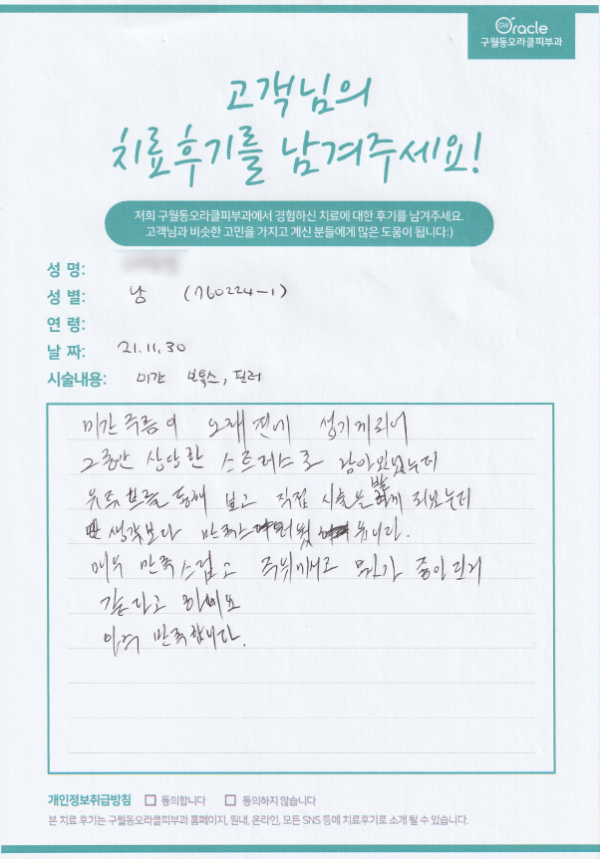 Oracle
구월동오라클피부과
고객님의
치료후기를 남겨주세요!
저희 구월동오라클피부과에서 경험하신 치료에 대한 후기를 남겨주세요.
고객님과 비슷한 고민을 가지고 계신 분들에게 많은 도움이 됩니다:)
성 명:
성 별: 남 (760224-1)
연 령:
날 짜: 21.11.30
시술내용: 미간 보톡스, 필러
미간 주름이 오래 전에 생기게되어
그동안 상당한 스트레스로 남아있었는데
유튜브를 통해 보고 직접 시술을 받게 되었는데
생각보다 만족스러웠습니다.
매우 만족스럽고 주위에서도 뭐가 좋아진거
같다고 하네요
아주 만족합니다.
개인정보취급방침 동의합니다 동의하지 않습니다
본 치료 후기는 구월동오라클피부과 홈페이지, 원내, 온라인, 모든 SNS 등에 치료후기로 소개 될 수 있습니다.